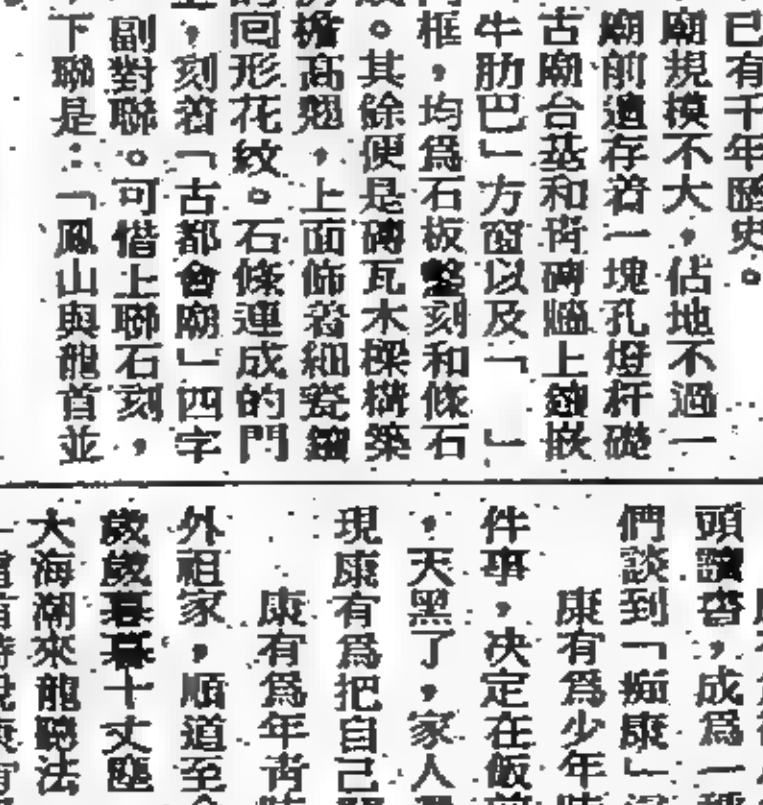 已有千年歷史。
廟規模不大，佔地不過一
廟前遺存着一塊孔燈杆礎
古廟台基和青磚牆上鑲嵌
牛肋巴」方窗以及「　」
框，均爲石板鑿刻和條石
。其餘便是磚瓦木樑構築
檐高翹，上面飾着細瓷鑲
回形花紋。石條連成的門
，刻着「古都會廟」四字
副對聯。可惜上聯石刻，
下聯是：「鳳山與龍首並
頭讀書，成爲一種
們談到「痴康」
康有爲少年時
件事，决定在飯前
，天黑了，家人
現康有爲把自己
康有爲年青時
外祖家，順道至
歲歲暮暮十丈塵
大海潮來龍聽法